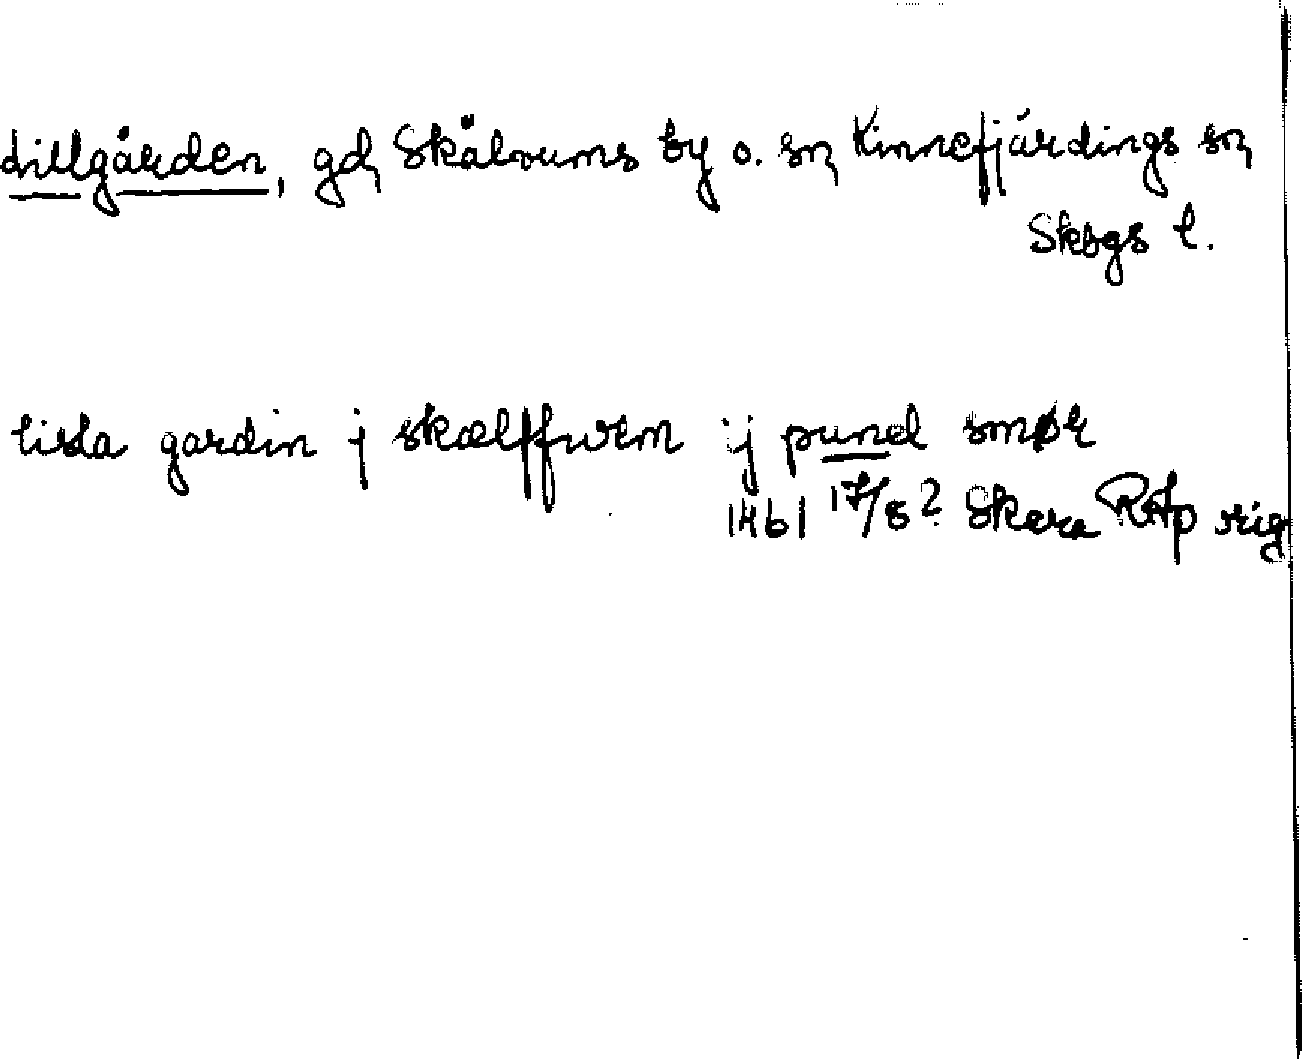 Lillgården, gd, Skälvums by o. sn, Kinnefjärdings sn,
Skbgs l.
lisla gardin j skælffwem ij pund smør
1461 17/8? Skara RAp rig